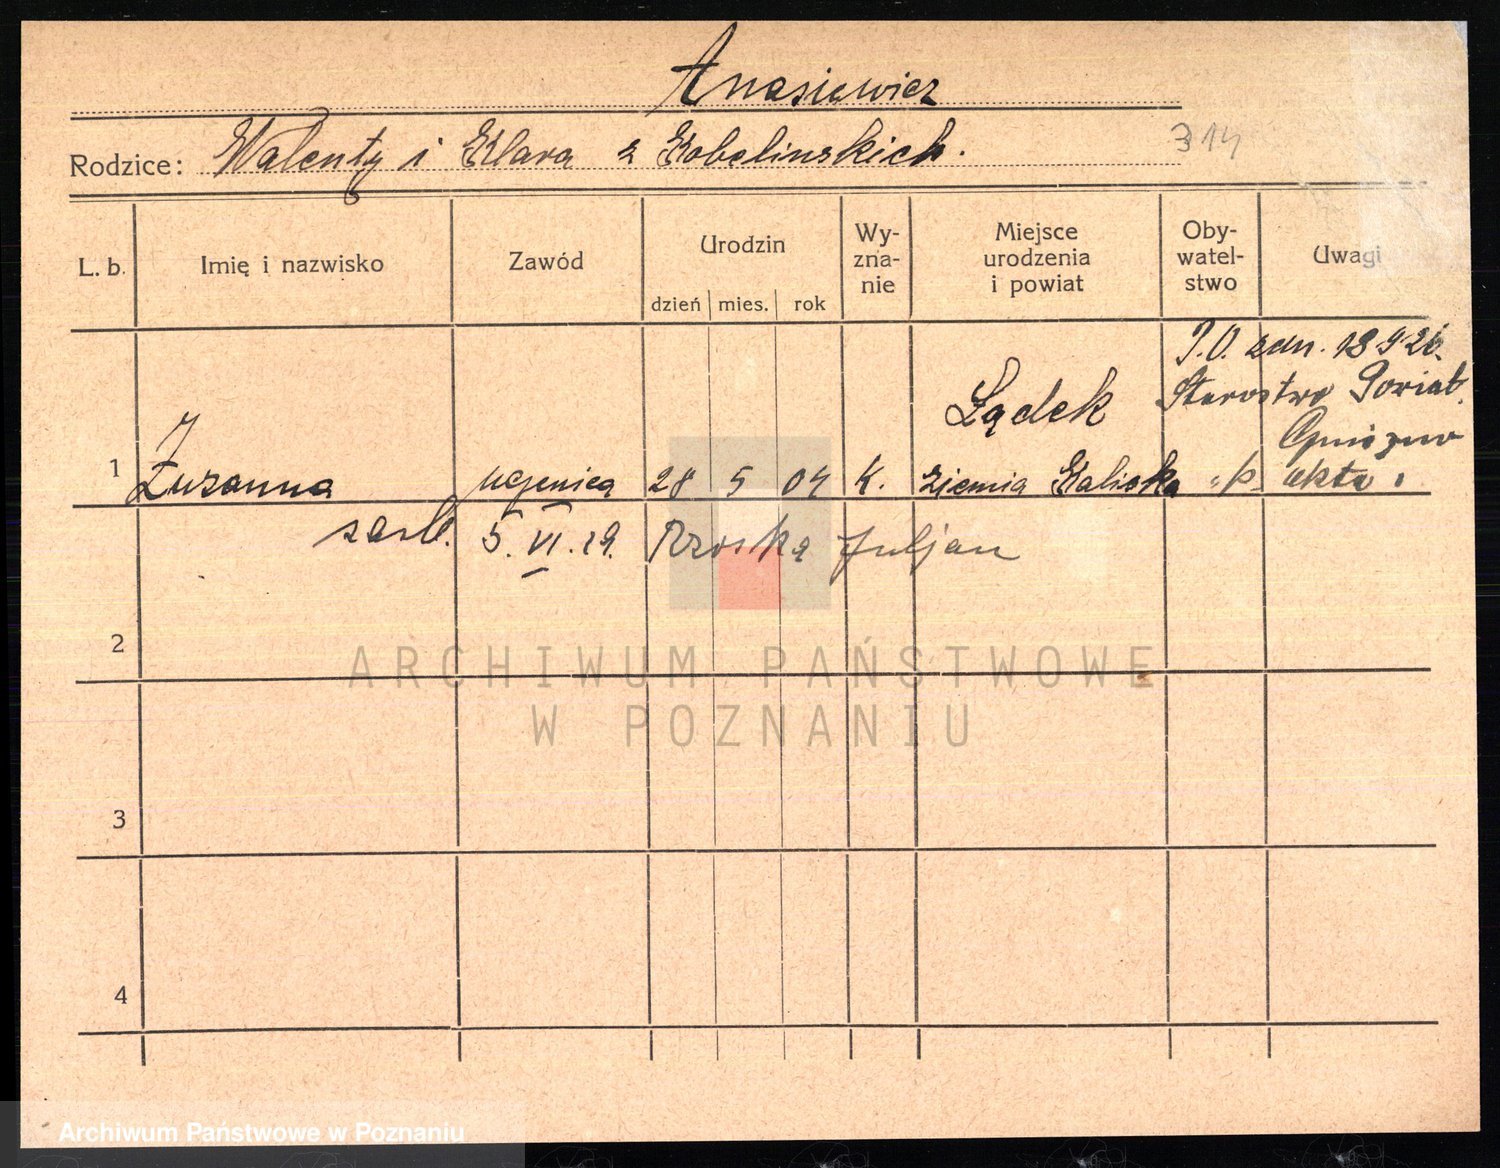 Anasiewicz
Rodzice: Walenty i Klara z Kobelinskich.
314
L. b.
Imię i nazwisko
Zawód
Urodzin
dzień mies. rok
Wy-
zna-
nie
Miejsce
urodzenia
i powiat
Oby-
watel-
stwo
Uwagi
P.O. zdn. 18 9 26.
Starostwo Powiat.
Gniezno
akta.
1 Zuzanna uczenica 28 5 04 K. Lądek
ziemia Kaliska
zaśl. 5. VI. 29. Rzoska Juljan
2
3
4
ARCHIWUM PAŃSTWOWE
W POZNANIU
Archiwum Państwowe w Poznaniu